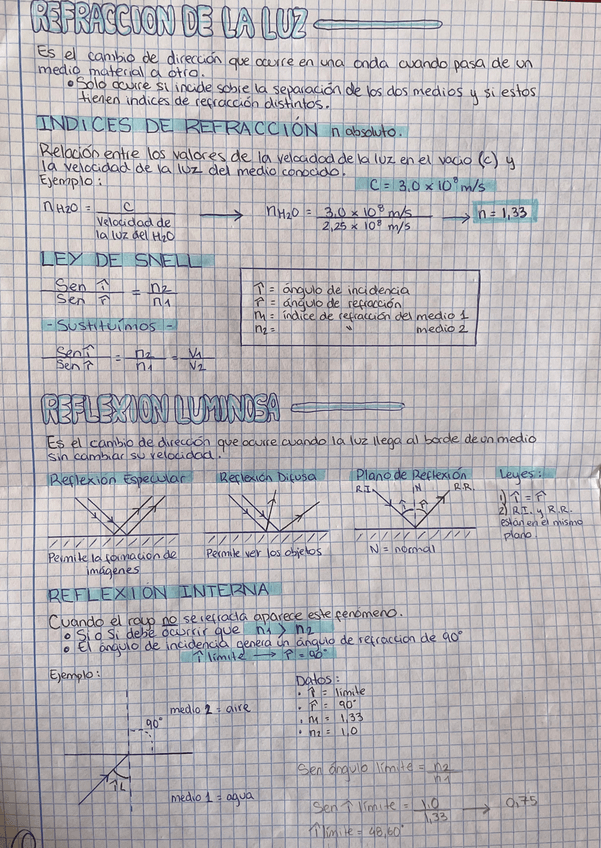 REFRACCION DE LA LUZ
Es el cambio de dirección que ocurre en una onda cuando pasa de un
medio material a otro.
• Solo ocurre si incide sobre la separación de los dos medios y si estos
tienen indices de refracción distintos.
INDICES DE REFRACCIÓN n absoluto.
Relación entre los valores de la velocidad de la luz en el vacio (c) y
la velocidad de la luz del medio conocido.
Ejemplo:
C = 3,0 x 10⁸ m/s
n H2O = C / Velocidad de la luz del H2O → n H2O = 3,0 x 10⁸ m/s / 2,25 x 10⁸ m/s → n = 1,33
LEY DE SNELL
Sen î / Sen r̂ = n2 / n1
î = ángulo de incidencia
r̂ = ángulo de refracción
n1 = indice de refracción del medio 1
n2 = " medio 2
- Sustituímos -
Sen î / Sen r̂ = n2 / n1 = V1 / V2
REFLEXION LUMINOSA
Es el cambio de dirección que ocurre cuando la luz llega al borde de un medio
sin cambiar su velocidad.
Reflexion Especular
Permite la formación de
imágenes
Reflexión Difusa
Permite ver los objetos
Plano de Reflexión
R.I. N R.R.
î r̂
N = normal
Leyes:
1) î = r̂
2) R.I. y R.R.
están en el mismo
plano.
REFLEXIÓN INTERNA
Cuando el rayo no se refracta aparece este fenómeno.
• Si o Si debe ocurrir que n1 > n2
• El ángulo de incidencia genera un ángulo de refraccion de 90°
î límite → r̂ = 90°
Ejemplo:
medio 2 = aire
90°
îL
medio 1 = agua
Datos:
• î = límite
• r̂ = 90°
• n1 = 1,33
• n2 = 1,0
Sen ángulo límite = n2 / n1
Sen î límite = 1,0 / 1,33 → 0,75
î límite = 48,60°